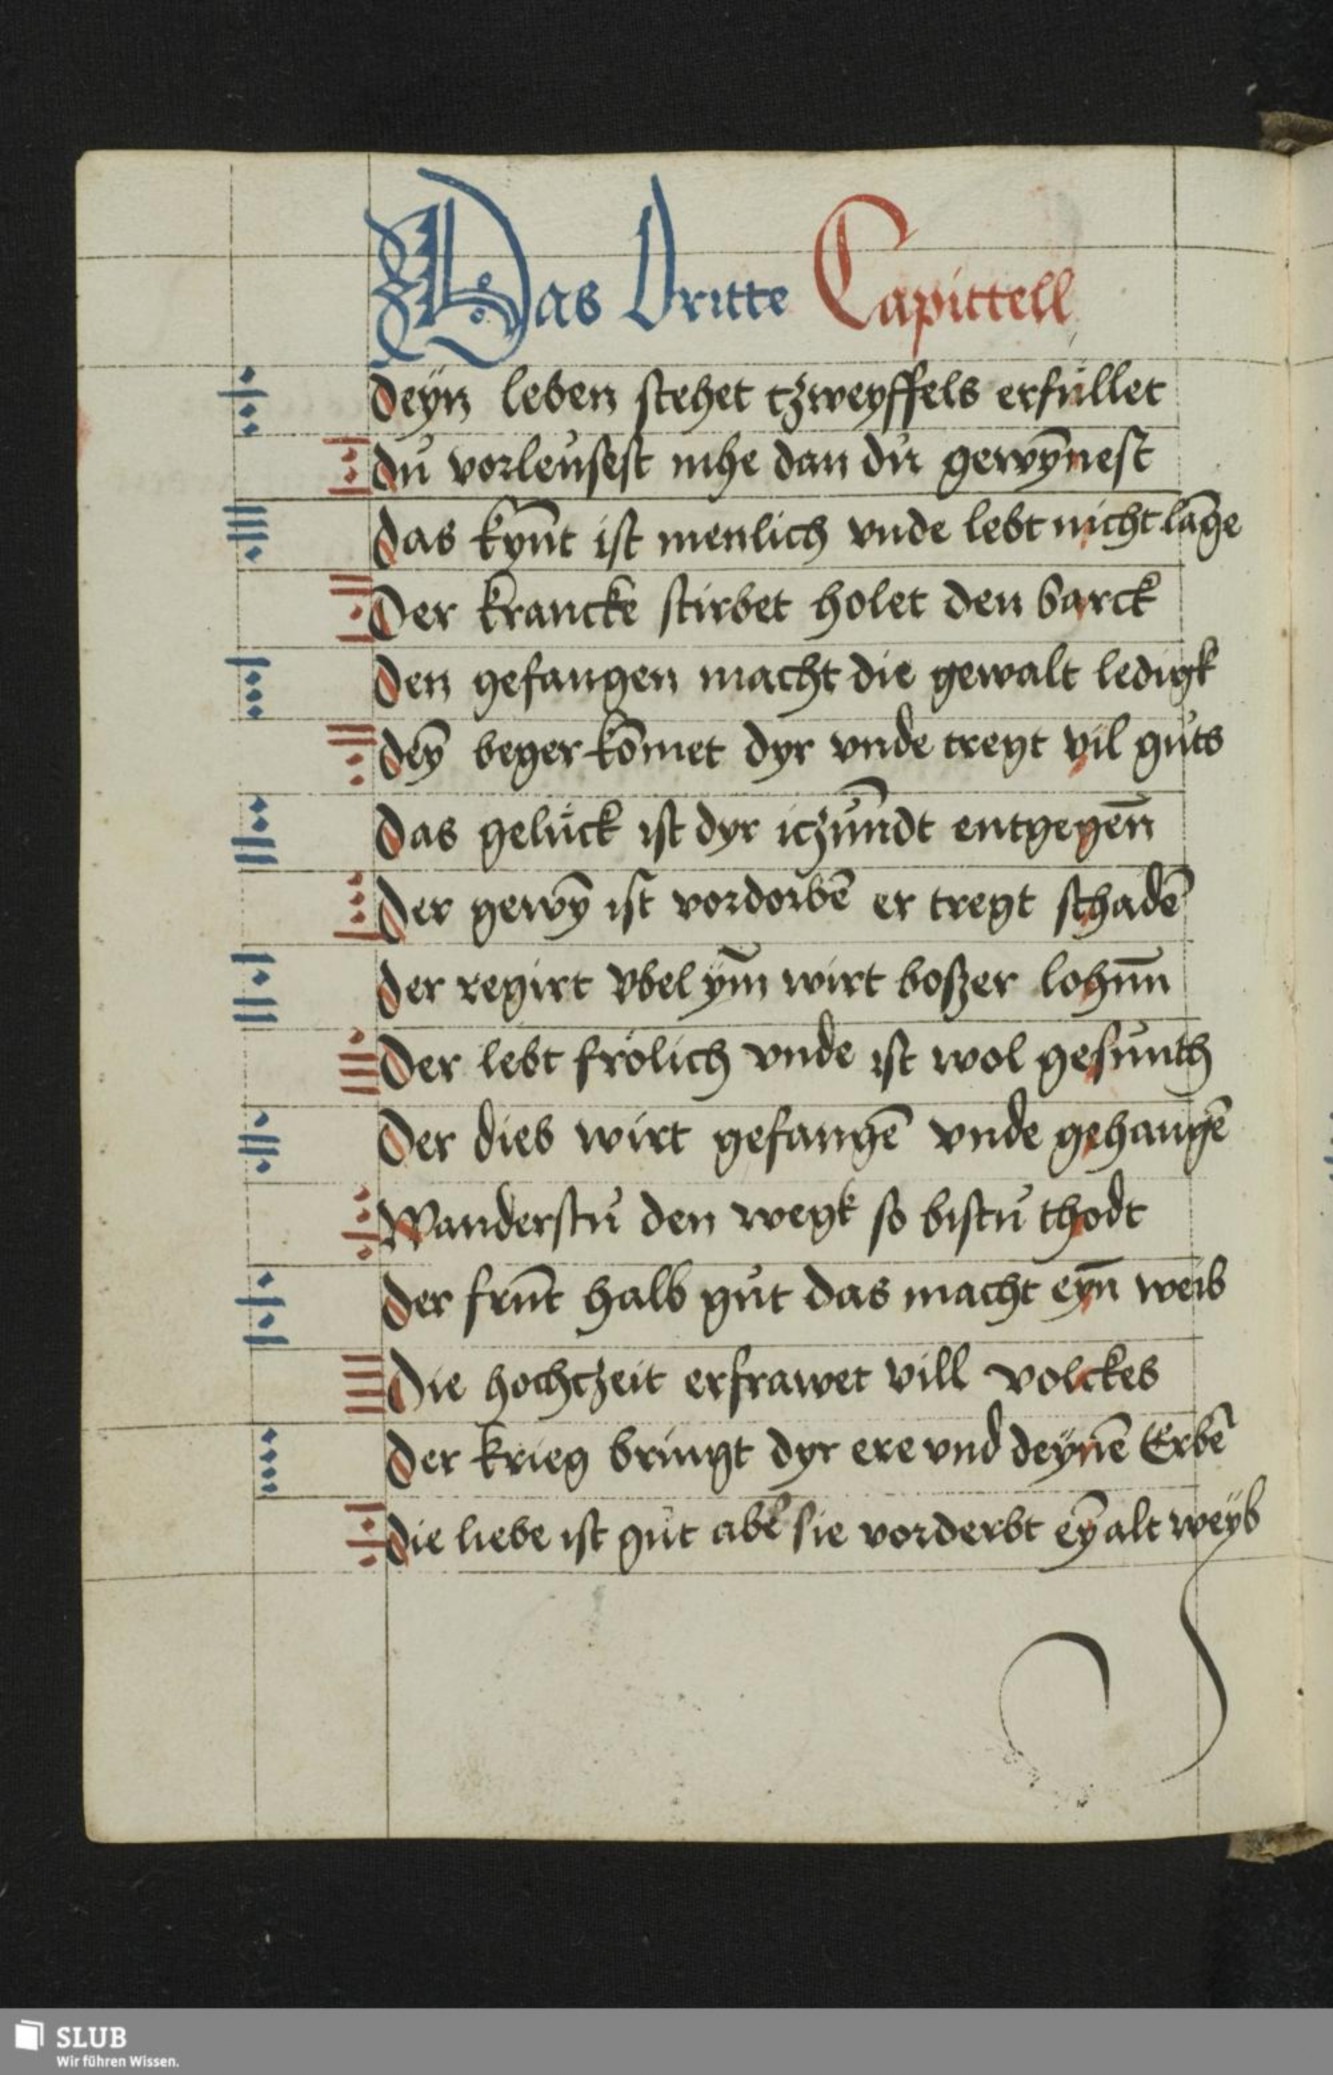 Das Dritte Capittell
deyn leben stehet tzweyffels erfullet
du vorleusest mhe dan du gewȳnest
das kyn̄t ist menlich vnde lebt nicht lāge
Der krancke stirbet holet den barck
den gefangen macht die gewalt ledigk
deȳ beger kōmet dyr vnde tregt vil guts
das geluck ist dyr iczūndt entgegen̄
der gewȳ ist vordorbē er tregt schadē
der regirt vbel ym̄ wirt boszer lohnn̄
Der lebt frolich vnde ist wol gesunth
Der dieb wirt gefangē vnde gehangē
Wanderstu den wegk so bistu thodt
der frūt halb gut das macht eyn̄ weib
Die hochczeit erfrawet vill volckes
der krieg bringt dyr ere vnd deynē Erbē
die liebe ist gut abͤ sie vorderbt eȳ alt weyb
SLUB
Wir führen Wissen.